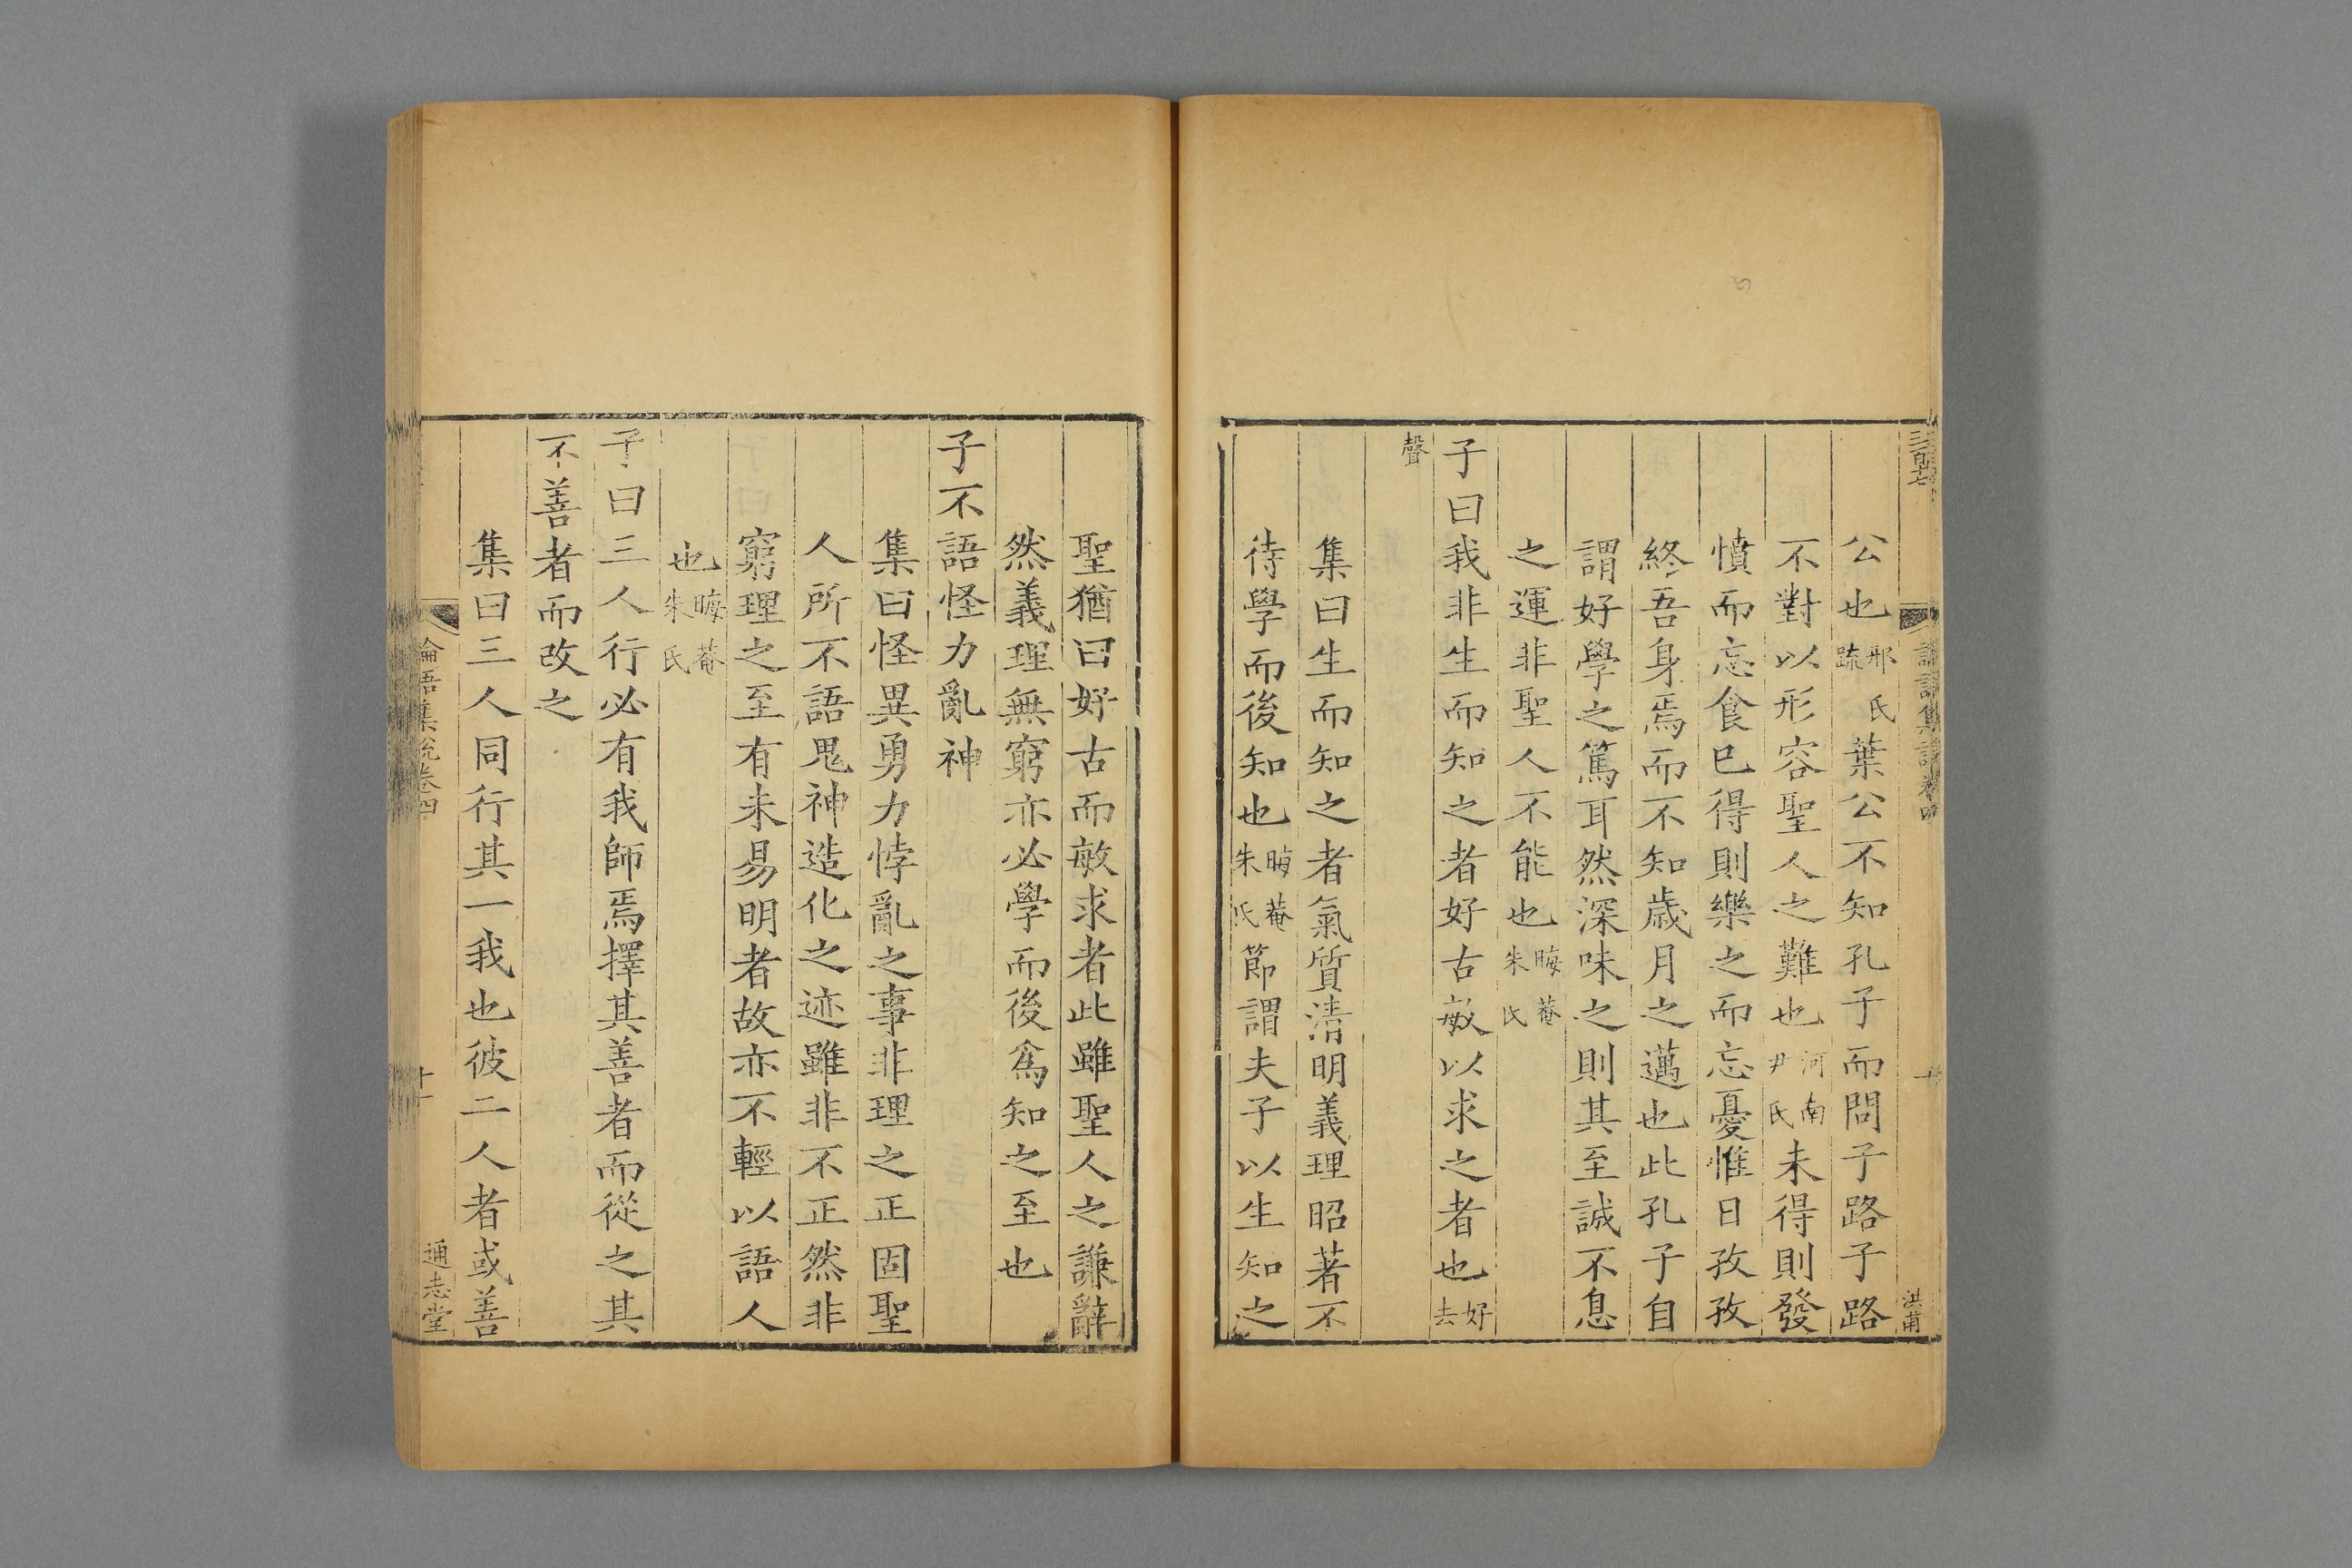 公也邢氏疏葉公不知孔子而問子路子路
不對以形容聖人之難也河南尹氏未得則發
憤而忘食已得則樂之而忘憂惟日孜孜
終吾身焉而不知歲月之邁也此孔子自
謂好學之篤耳然深味之則其至誠不息
之運非聖人不能也晦菴朱氏
子曰我非生而知之者好古敏以求之者也好去
聲
集曰生而知之者氣質清明義理昭著不
待學而後知也晦菴朱氏節謂夫子以生知之
洪莆
聖猶曰好古而敏求者此雖聖人之謙辭
然義理無窮亦必學而後爲知之至也
子不語怪力亂神
集曰怪異勇力悖亂之事非理之正固聖
人所不語鬼神造化之迹雖非不正然非
窮理之至有未易明者故亦不輕以語人
也晦菴朱氏
子曰三人行必有我師焉擇其善者而從之其
不善者而改之
集曰三人同行其一我也彼二人者或善
論語集說卷四
十一
通志堂